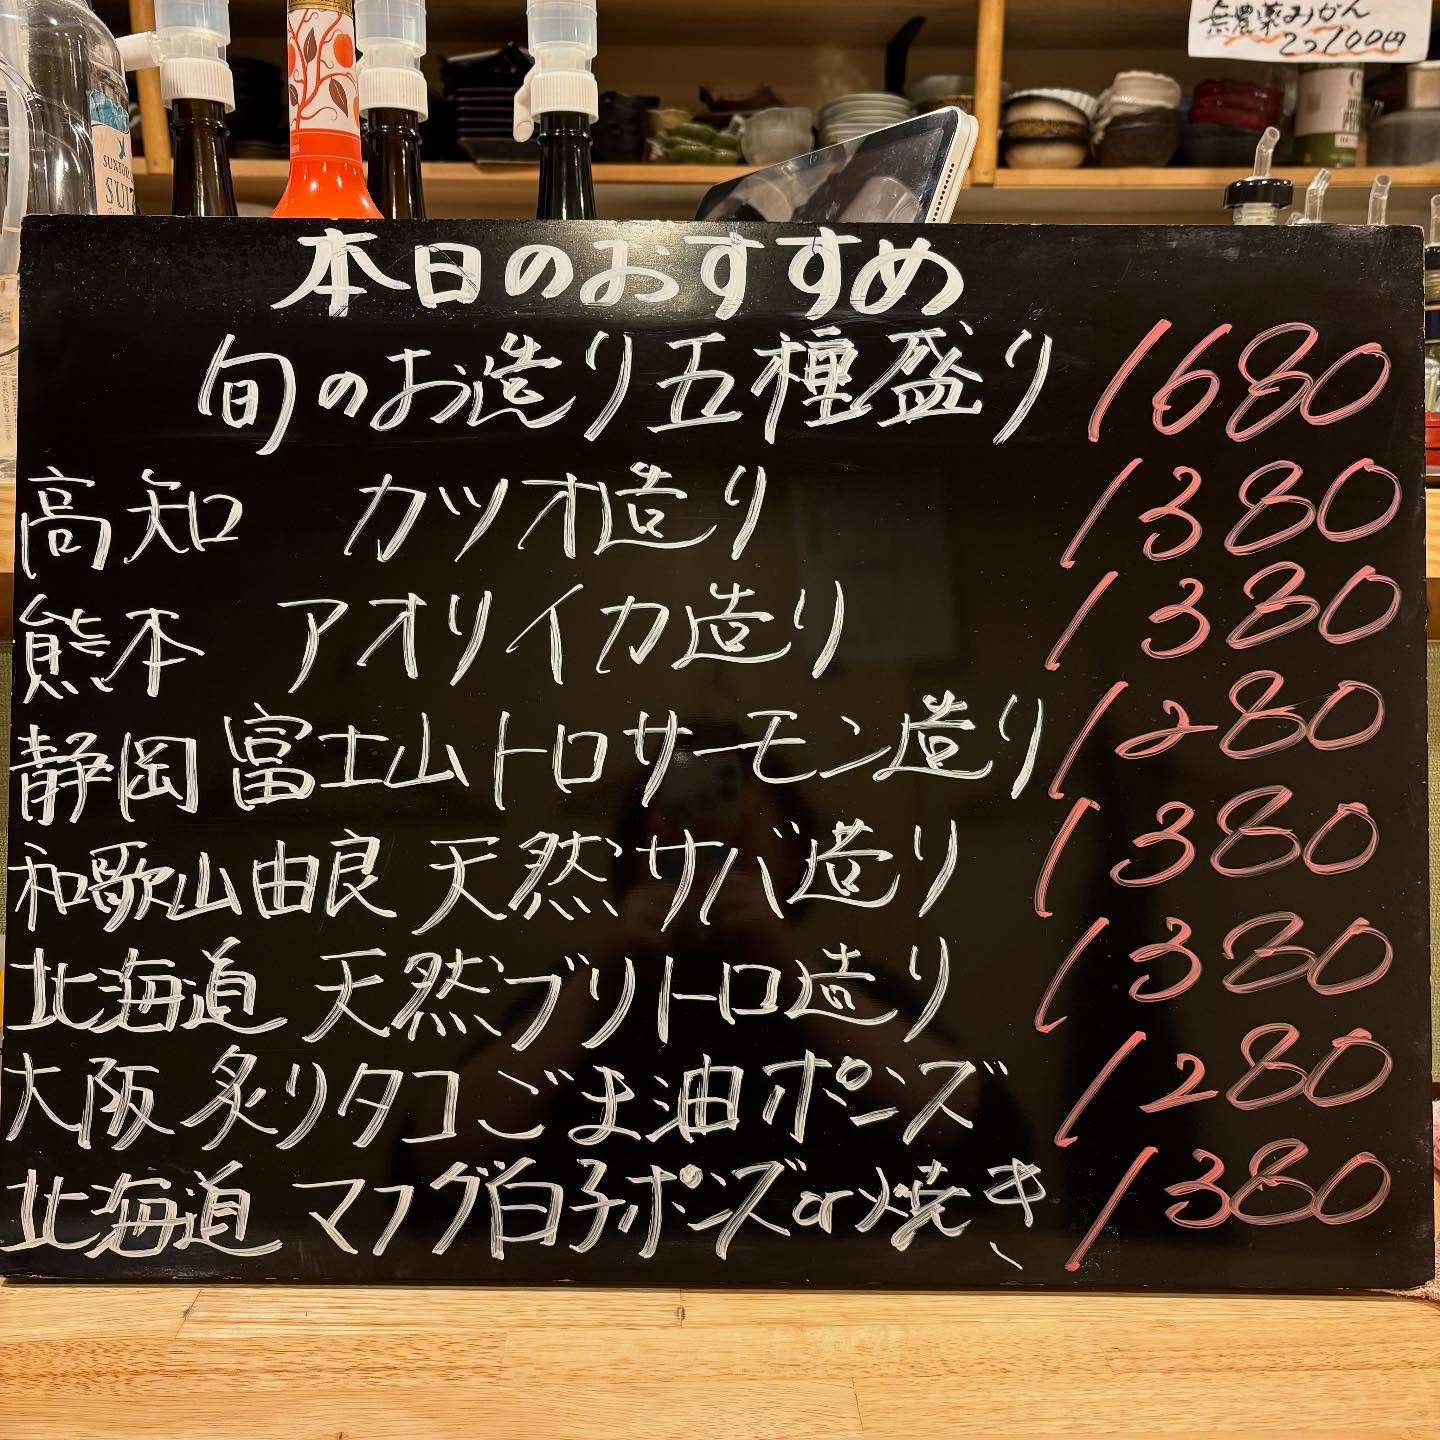 無農薬みかん
2つ100円
SUNTORY
SUI
本日のおすすめ
旬のお造り五種盛り 1680
高知 カツオ造り 1380
熊本 アオリイカ造り 1380
静岡 富士山トロサーモン造り 1280
和歌山由良 天然サバ造り 1380
北海道 天然ブリトロ造り 1380
大阪 炙りタコごま油ポンズ 1280
北海道 マフグ白子ポンズor焼き 1380